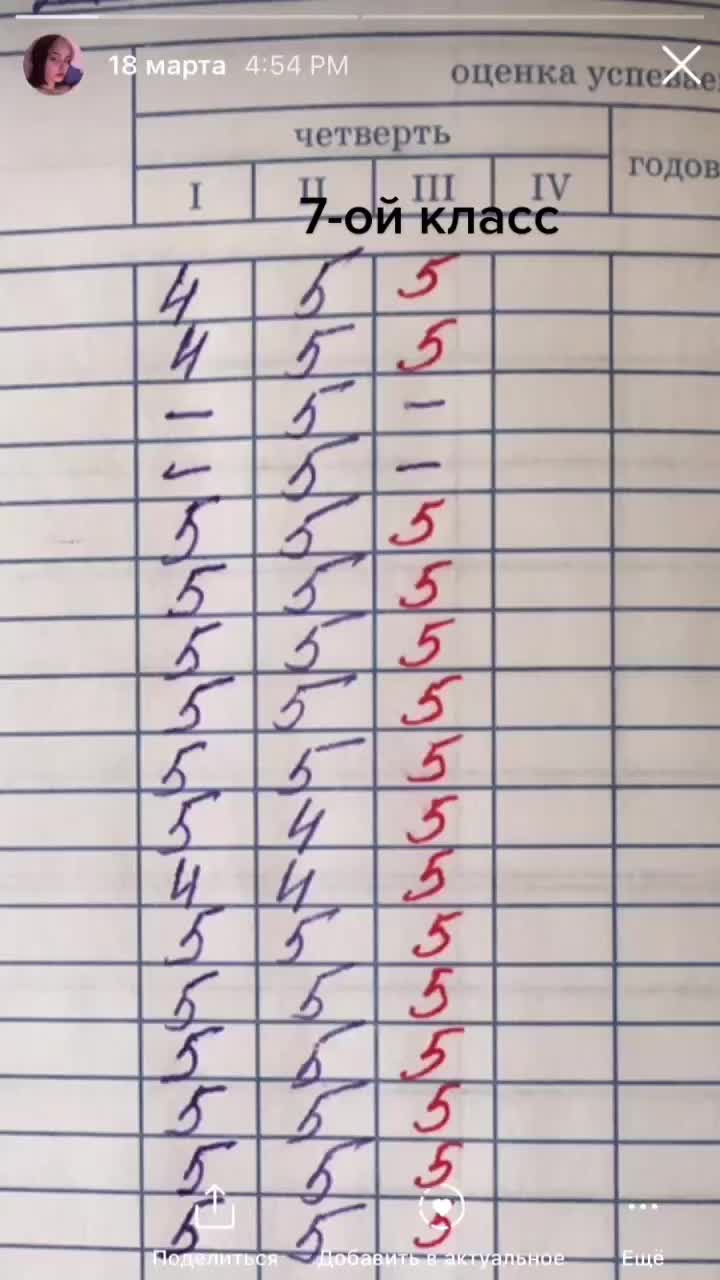 18 марта 4:54 PM
оценка успевае
четверть
годов
I II III IV
7-ой класс
4 5 5
4 5 5
– 5 –
– 5 –
5 5 5
5 5 5
5 5 5
5 5 5
5 5 5
5 4 5
4 4 5
5 5 5
5 5 5
5 5 5
5 5 5
5 5 5
5 5 5
Поделиться Добавить в актуальное Ещё